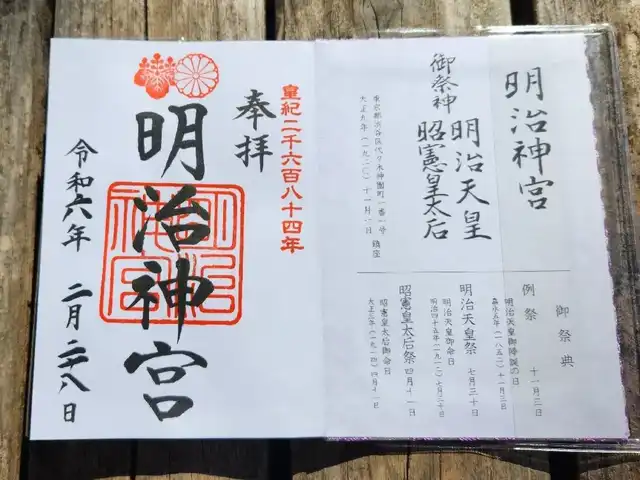 明治神宮
御祭神
明治天皇
昭憲皇太后
東京都渋谷区代々木神園町一番一号
大正九年(一九二〇)十一月一日 鎮座
御祭典
例祭 十一月三日
明治天皇御降誕の日
嘉永五年(一八五二)十一月三日
明治天皇祭 七月三十日
明治天皇御命日
明治四十五年(一九一二)七月三十日
昭憲皇太后祭 四月十一日
昭憲皇太后御命日
大正三年(一九一四)四月十一日
皇紀二千六百八十四年
奉拝
明治神宮
明治
神宮
令和六年 二月二十八日